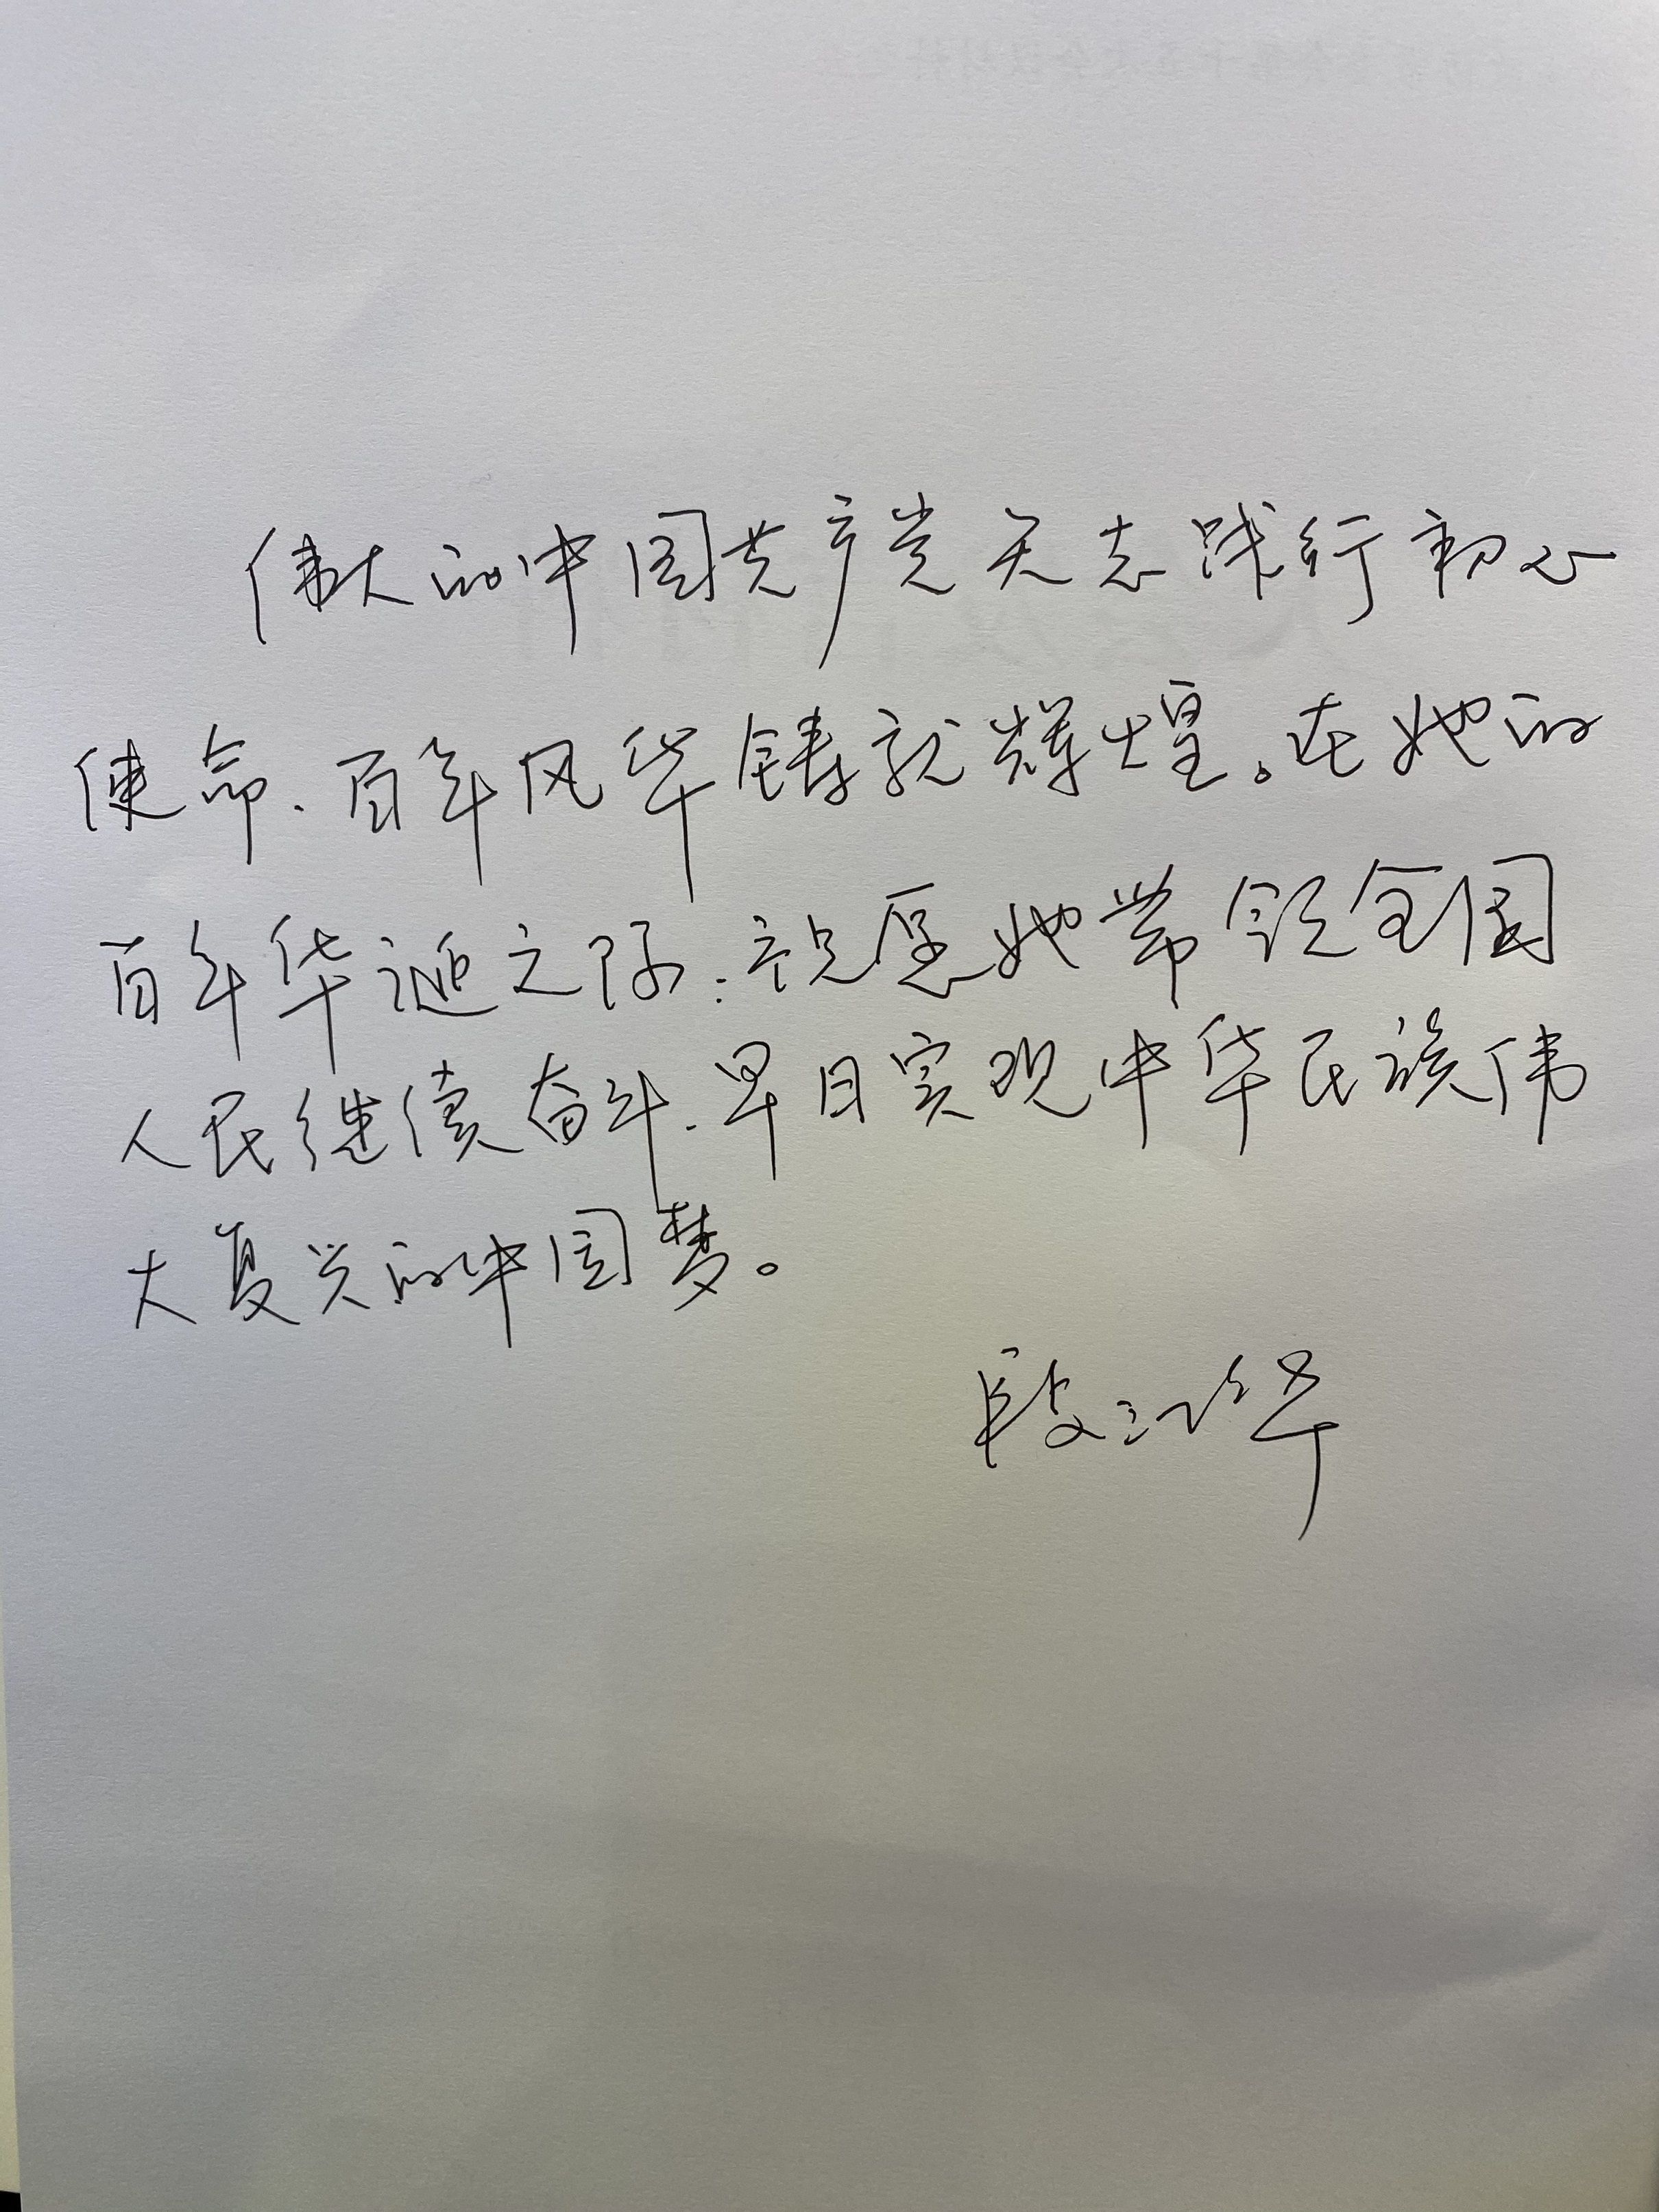 伟大的中国共产党矢志践行初心
使命.百年风华铸就辉煌。在她的
百年华诞之际:祝愿她带领全国
人民继续奋斗.早日实现中华民族伟
大复兴的中国梦。
段江华